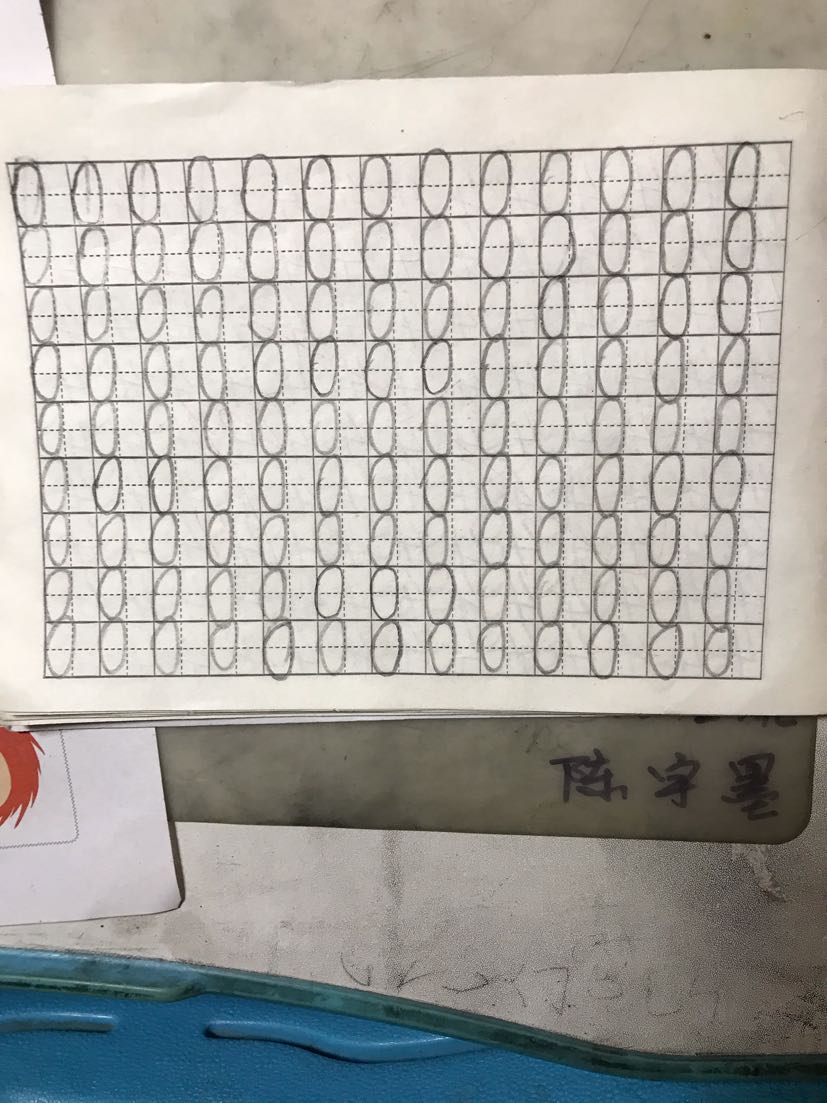 0 0 0 0 0 0 0 0 0 0 0 0 0
0 0 0 0 0 0 0 0 0 0 0 0 0
0 0 0 0 0 0 0 0 0 0 0 0 0
0 0 0 0 0 0 0 0 0 0 0 0 0
0 0 0 0 0 0 0 0 0 0 0 0 0
0 0 0 0 0 0 0 0 0 0 0 0 0
0 0 0 0 0 0 0 0 0 0 0 0 0
0 0 0 0 0 0 0 0 0 0 0 0 0
0 0 0 0 0 0 0 0 0 0 0 0 0
陈宇墨